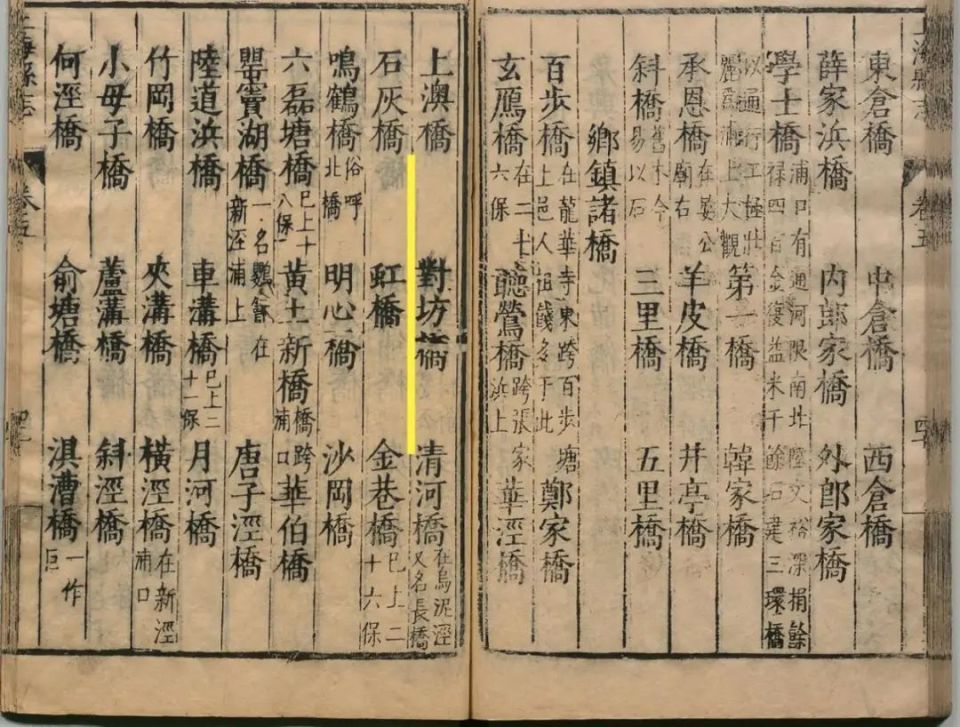 上海縣志
卷五
東倉橋 中倉橋 西倉橋
薛家浜橋 内郎家橋 外郎家橋
學士橋 浦口有通河限南北陸文裕深捐餘祿四百金復益米千餘石建三環橋
以通行工極壯麗爲浦上大觀 第一橋 韓家橋
承恩橋 在晏公廟右 羊皮橋 井亭橋
斜橋 舊木今易以石 三里橋 五里橋
鄉鎮諸橋
百步橋 在龍華寺東跨百步塘上邑人祖餞多于此 鄭家橋
玄鴈橋 在二十六保 聽鶯橋 跨張家浜上 華涇橋
上澳橋 對坊橋 清河橋 在烏泥涇又名長橋
石灰橋 虹橋 金巷橋 巳上二十六保
鳴鶴橋 俗呼北橋 明心橋 沙岡橋
六磊塘橋 巳上十八保 黃土新橋 橋跨浦口 華伯橋
瞿竇湖橋 一名鸚 在新涇浦上 唐子涇橋
陸道浜橋 車溝橋 巳上二十一保 月河橋
竹岡橋 夾溝橋 橫涇橋 在新涇浦口
小母子橋 蘆溝橋 斜涇橋
何涇橋 俞塘橋 俱漕橋 一作巨
上海縣志
卷五